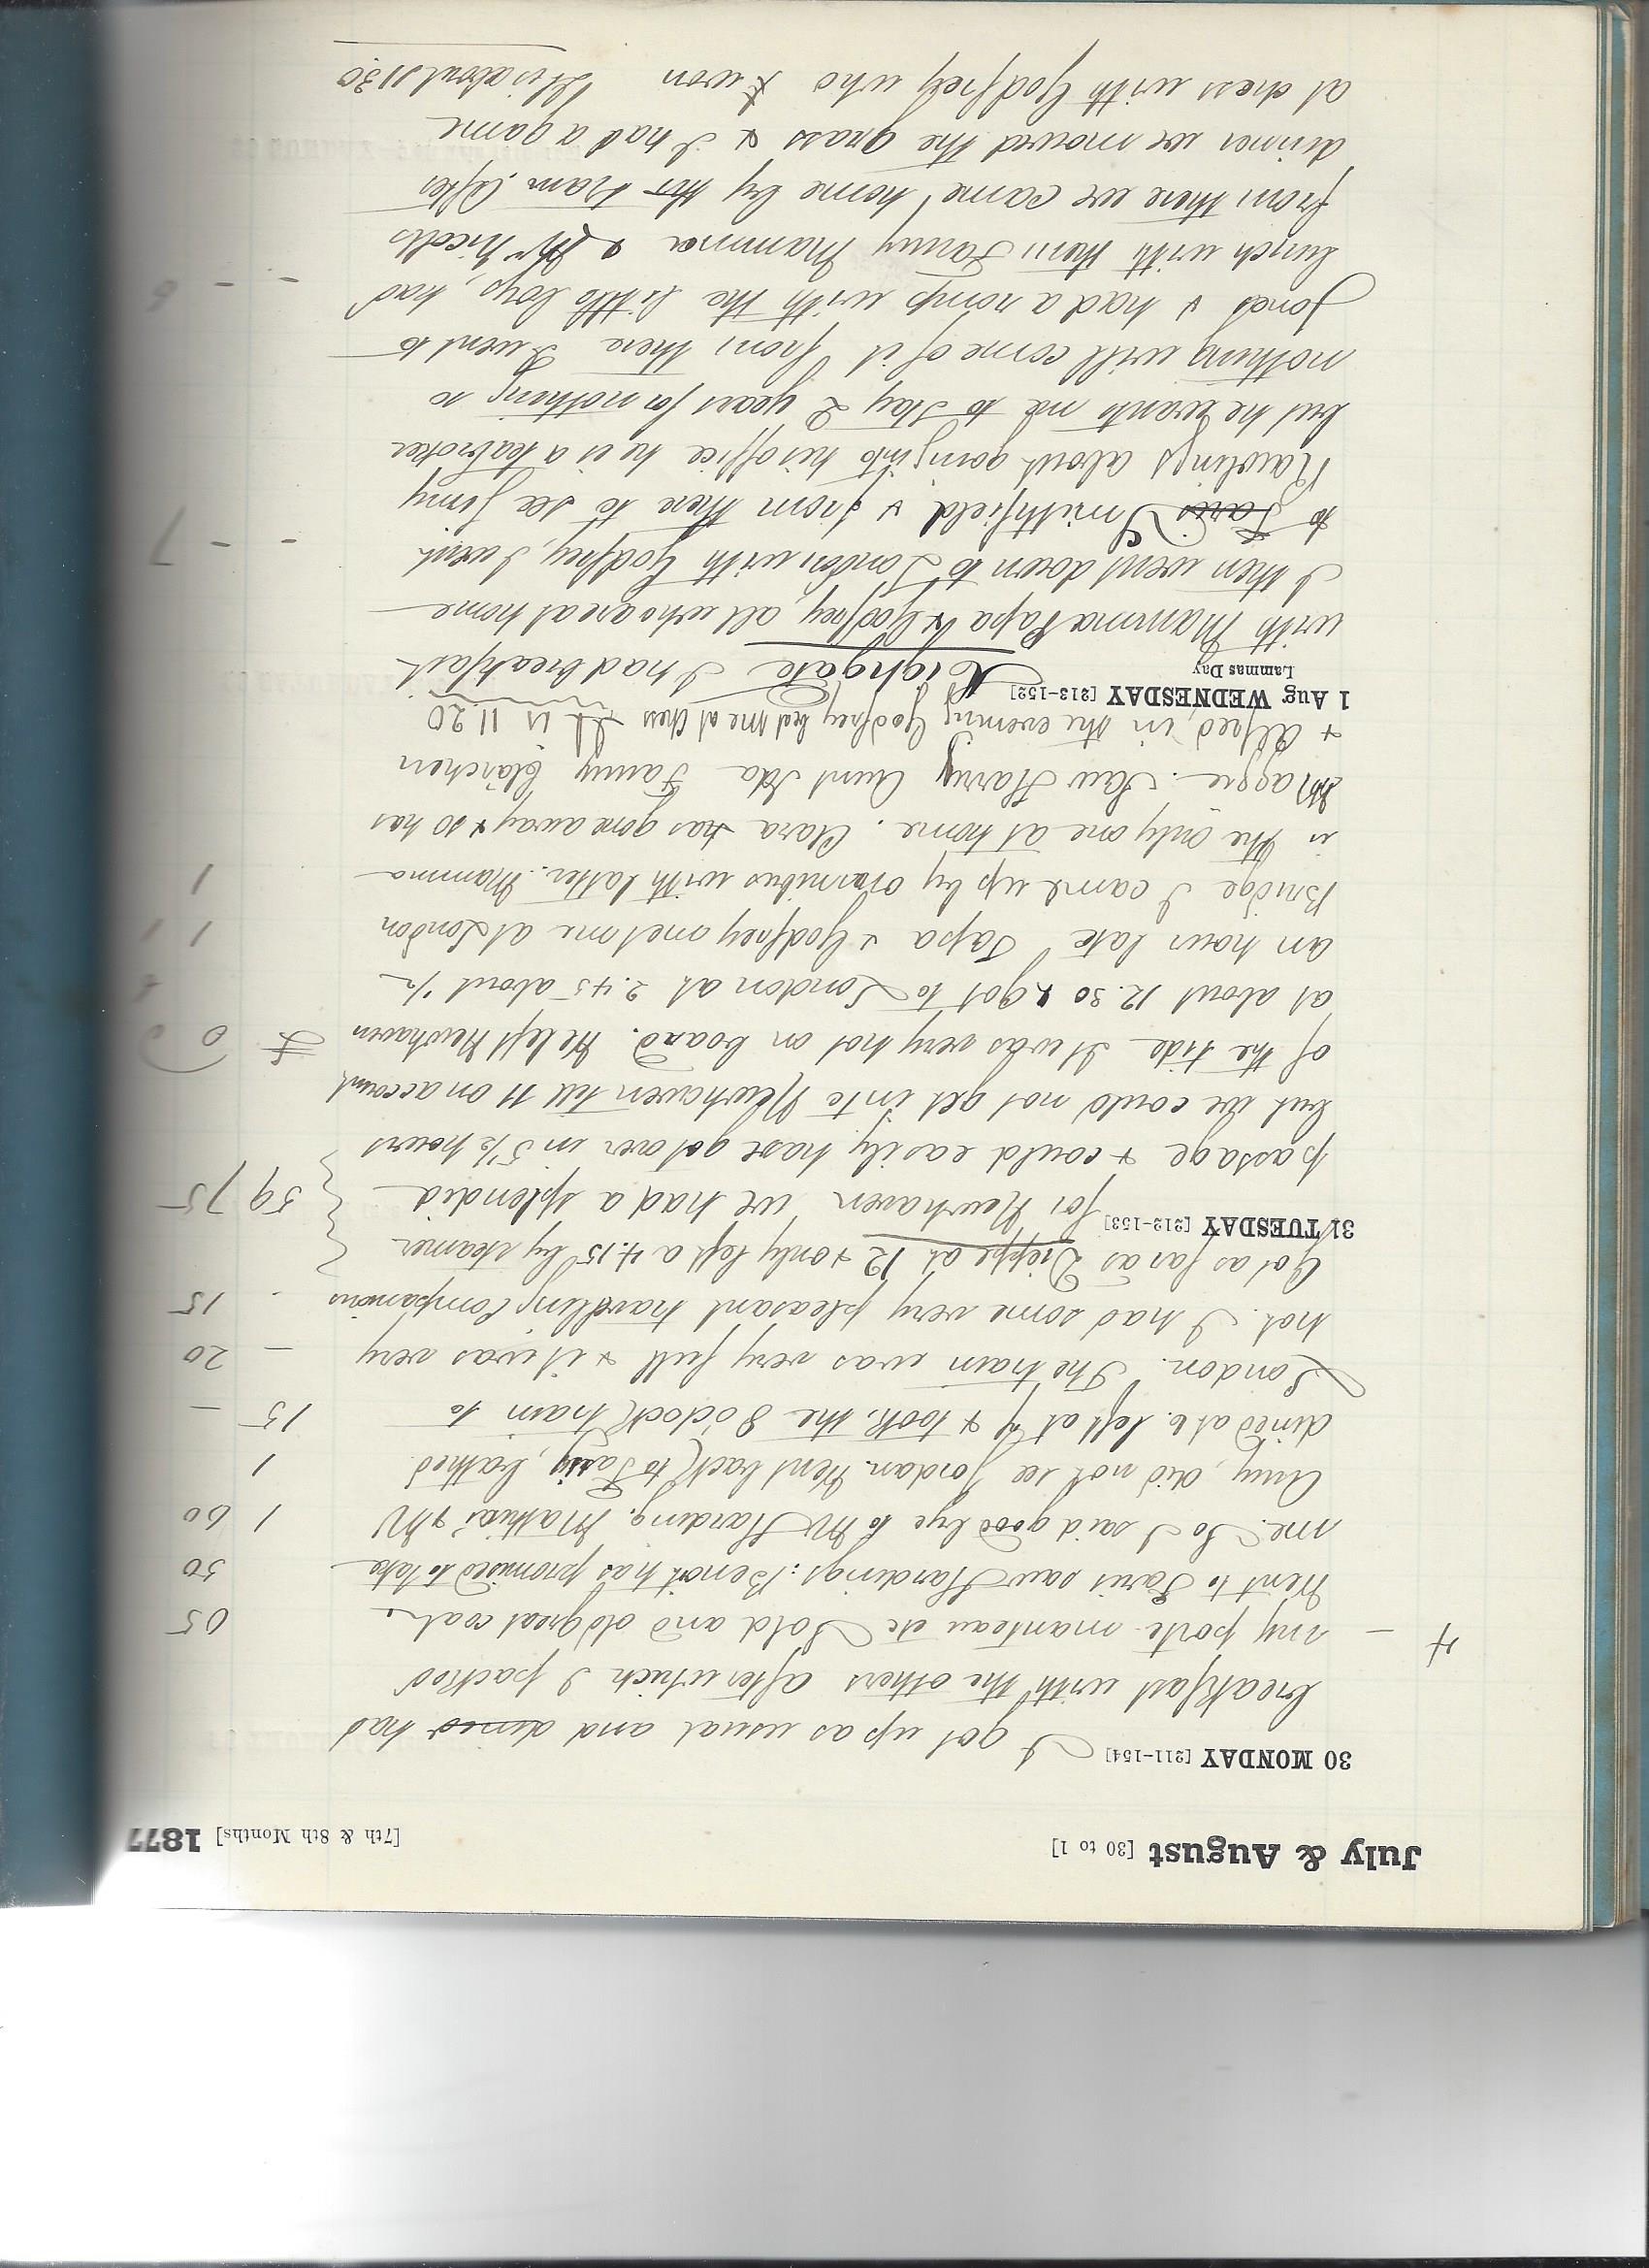 July & August [30 to 1] [7th & 8th Months] 1877
30 MONDAY [211-154] I got up as usual and dined had
breakfast with the others after which I packed
4 – my porte-manteau etc Sold and old great coat 05
Went to Paris saw Hardings: Benoit has promised to take 50
me. So I said good bye to Mr Harding, Mathias & W 1 60
Amy, did not see Jordan. Went back to Passy, bathed 1
dined at 6. left at 7 & took the 8 oclock train to 15 –
London. The train was very full & it was very – 20
hot. I had some very pleasant travelling companions - 15
Got as far as Dieppe at 12 & only left a 4.15 by steamer
31 TUESDAY [212-153] for Newhaven we had a splendid 59 75
passage & could easily have got over in 5½ hours
but we could not get into Newhaven till 11 on account
of the tide. It was very hot on board. We left Newhaven £
at about 12.30 & got to London at 2.45 about ½
an hour late Papa & Godfrey met me at London 1 1
Bridge I came up by omnibus with latter. Mamma 1
is the only one at home. Clara has gone away & so has
Maggie. Saw Harry Aunt Ida Fanny Clärchen
& Alfred, in the evening Godfrey bet me at chess It is 11.20
1 Aug WEDNESDAY [213-152] Highgate I had breakfast
Lammas Day
with Mamma Papa & Godfrey, all who are at home
I then went down to London with Godfrey, I went
to Paris Smithfield & from there to see Jimy - - 7
Rawlings about going into his office he is a teabroker
but he wants me to stay 2 years for nothing so
nothing will come of it from there I went to
Jones & had a romp with the little boys, had - - 6
lunch with them Fanny Mamma & Mr Nicolls
from there we came home by the tram. After
dinner we mowed the grass & I had a game
at chess with Godfrey who won It is about 11.30